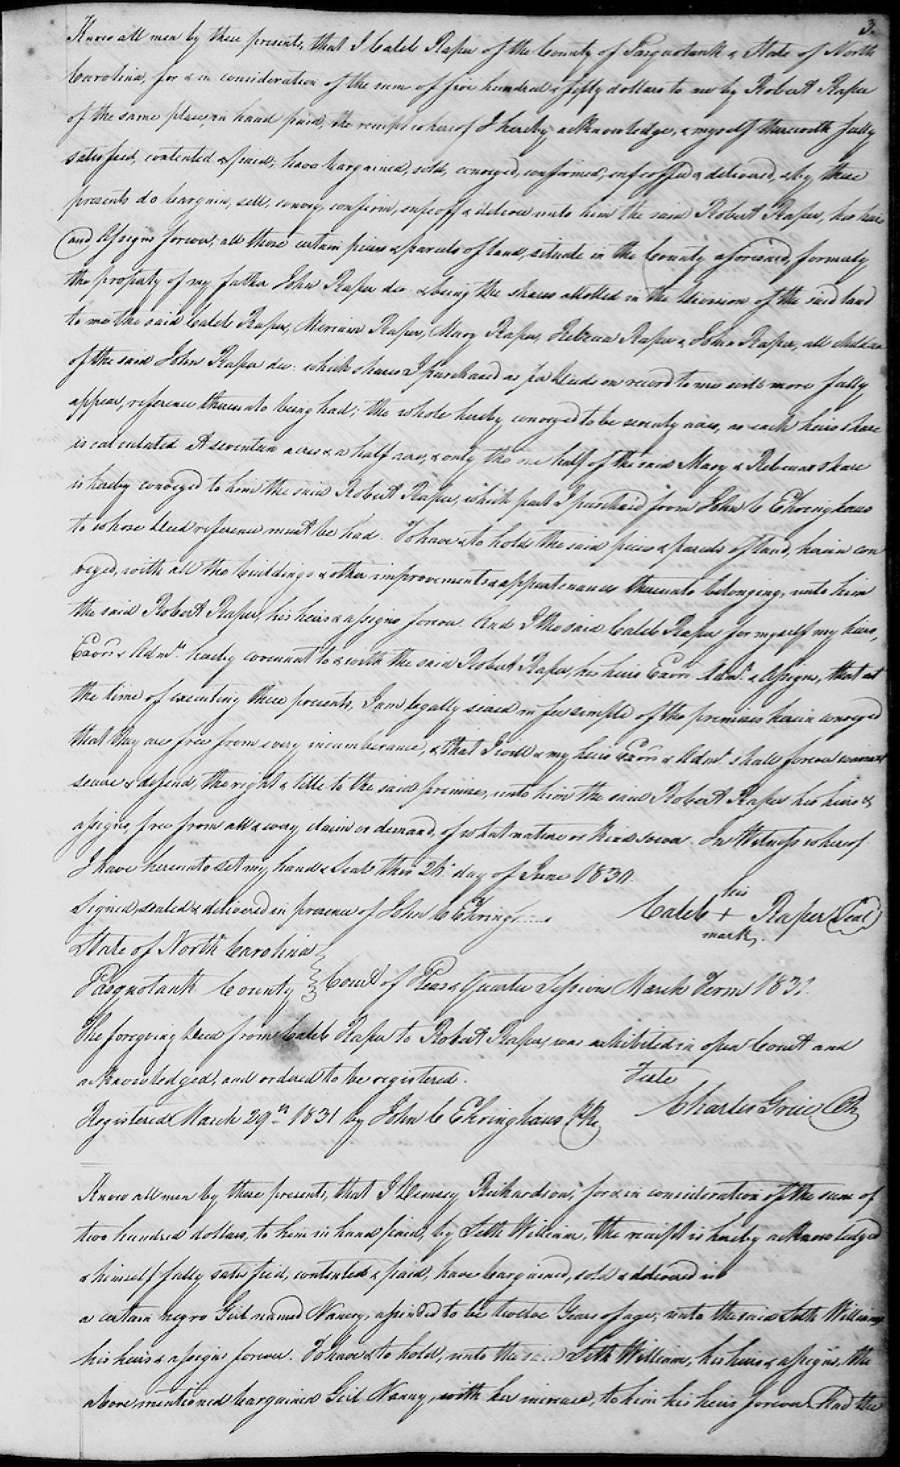 3.
Know all men by these presents, that I Caleb Raper of the County of Pasquotank & State of North
Carolina, for & in consideration of the sum of five hundred & fifty dollars to me by Robert Raper
of the same place, in hand paid, the receipt whereof I hereby acknowledge, & myself therewith fully
satisfied, contented & paid, have bargained, sold, conveyed, confirmed, enfeoffed & delivered, & by these
presents do bargain, sell, convey, confirm, enfeoff & deliver unto him the said Robert Raper, his heirs
and Assigns forever, all those certain pieces & parcels of land, situate in the County aforesaid, formerly
the property of my father John Raper dec. & being the shares allotted in the division of the said land
to me the said Caleb Raper, Miriam Raper, Mary Raper, Rebecca Raper & John Raper, all children
of the said John Raper dec: which shares I purchased as per Deeds on record to me will more fully
appear, reference thereunto being had; the whole hereby conveyed to be seventy acres, as each heirs share
is calculated at seventeen acres & a half acre, & only the one half of the said Mary & Rebeccas share
is hereby conveyed to him the said Robert Raper, which part I purchased from John C Ehringhaus
to whose Deed reference must be had. To have & to hold the said pieces & parcels of land, herein con
veyed, with all the buildings & other improvements & appurtenances thereunto belonging, unto him
the said Robert Raper, his heirs & assigns forever. And I the said Caleb Raper for myself my heirs,
Exors & Admrs hereby covenant to & with the said Robert Raper, his heirs Exors Admrs & Assigns, that at
the time of executing these presents, I am legally seized in fee simple of the premises herein conveyed
that they are free from every incumberance, & that I will & my heirs Exors & Admrs shall forever warrant
secure & defend, the right & title to the said premises, unto him the said Robert Raper his heirs &
assigns, free from all & every claim or demand, of what nature or kind soever. In Witness whereof
I have hereunto set my hand & Seal this 26 day of June 1830.
Signed, sealed & delivered in presence of John C Ehringhaus Caleb his + mark Raper (Seal)
State of North Carolina
Pasquotank County Court of Pleas & Quarter Sessions March Term 1831.
The foregoing Deed from Caleb Raper to Robert Raper, was exhibited in open Court and
acknowledged, and ordered to be registered. Teste
Registered March 29th 1831 by John C Ehringhaus P.R. Charles Grice Clk
Know all men by these presents, that I Demsey Richardson, for & in consideration of the sum of
two hundred dollars, to him in hand paid, by Seth William, the receipt is hereby acknowledged
& himself fully satisfied, contented & paid, have bargained, sold & delivered
a certain negro Girl named Nancy, aginded to be twelve Years of age, unto the said Seth William
his heirs & assigns forever. To have & to hold, unto the said Seth William, his heirs & assigns, the
above mentioned bargained Girl Nancy, with her increase, to him his heirs forever. And the